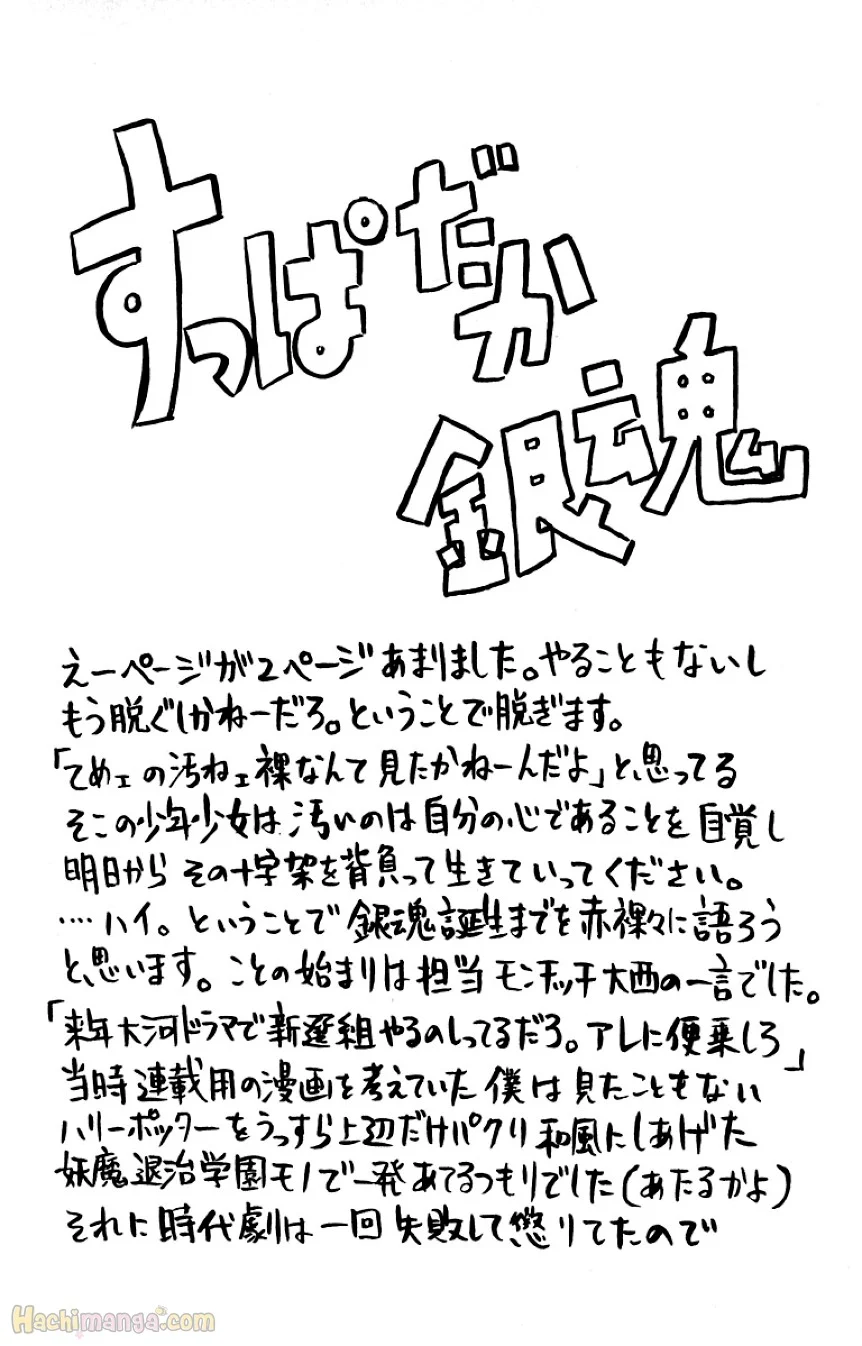 すっぱだか
銀魂
えーページが2ページあまりました。やることもないし
もう脱ぐしかねーだろ。ということで脱ぎます。
「てめェの汚ねェ裸なんて見たかねーんだよ」と思ってる
そこの少年少女は汚いのは自分の心であることを自覚し
明日からその十字架を背負って生きていってください。
‥‥ハイ。ということで銀魂誕生までを赤裸々に語ろう
と思います。ことの始まりは担当モンチッチ大西の一言でした。
「来年大河ドラマで新選組やるのしってるだろ。アレに便乗しろ」
当時連載用の漫画を考えていた僕は見たこともない
ハリーポッターをうっすら上辺だけパクリ和風にしあげた
妖魔退治学園モノで一発あてるつもりでした(あたるかよ)
それに時代劇は一回失敗して懲りてたので
Hachimanga.com